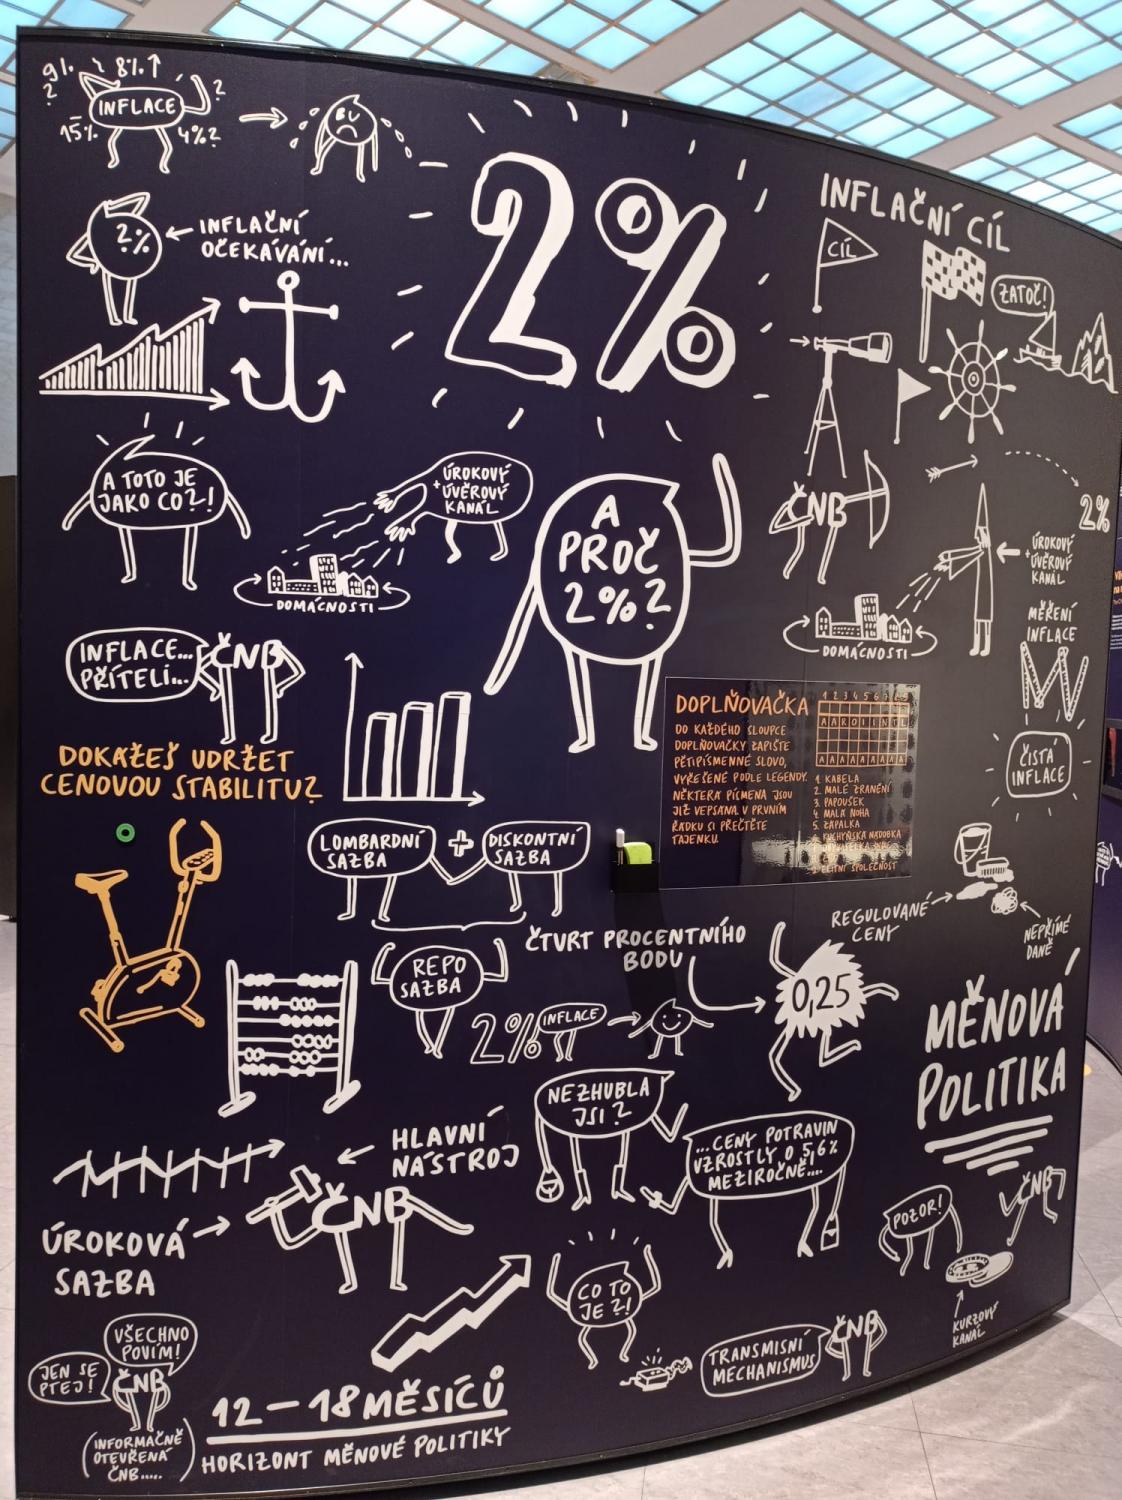 9%
?
8%↑
INFLACE
?
15%
4%?
BU
2%
INFLAČNÍ
OČEKÁVÁNÍ...
2%
INFLAČNÍ CÍL
CÍL
ZATOČ!
A TOTO JE
JAKO CO?!
ÚROKOVÝ
+ ÚVĚROVÝ
KANÁL
DOMÁCNOSTI
A
PROČ
2%?
ČNB
2%
ÚROKOVÝ
+ ÚVĚROVÝ
KANÁL
DOMÁCNOSTI
MĚŘENÍ
INFLACE
ČISTÁ
INFLACE
INFLACE...
PŘÍTELÍ...
ČNB
DOKÁŽEŠ UDRŽET
CENOVOU STABILITU?
DOPLŇOVAČKA
DO KAŽDÉHO SLOUPCE
DOPLŇOVAČKY ZAPIŠTE
PĚTIPÍSMENNÉ SLOVO,
VYŘEŠENÉ PODLE LEGENDY.
NĚKTERÁ PÍSMENA JSOU
JIŽ VEPSÁNA. V PRVNÍM
ŘÁDKU SI PŘEČTĚTE
TAJENKU.
1. KABELA
2. MALÉ ZRANĚNÍ
3. PAPOUŠEK
4. MALÁ NOHA
5. ZÁPALKA
KUCHYŇSKÁ NÁDOBKA
ELITNÍ SPOLEČNOST
LOMBARDNÍ
SAZBA
+
DISKONTNÍ
SAZBA
REPO
SAZBA
ČTVRT PROCENTNÍHO
BODU
0,25
2%
INFLACE
REGULOVANÉ
CENY
NEPŘÍMÉ
DANĚ
MĚNOVÁ
POLITIKA
NEZHUBLA
JSI?
...CENY POTRAVIN
VZROSTLY O 5,6%
MEZIROČNĚ....
HLAVNÍ
NÁSTROJ
ČNB
ÚROKOVÁ
SAZBA
POZOR!
ČNB
KURZOVÝ
KANÁL
CO TO
JE?!
TRANSMISNÍ
MECHANISMUS
ČNB
VŠECHNO
POVÍM!
JEN SE
PTEJ!
ČNB
(INFORMAČNĚ
OTEVŘENÁ
ČNB.....)
12–18 MĚSÍCŮ
HORIZONT MĚNOVÉ POLITIKY